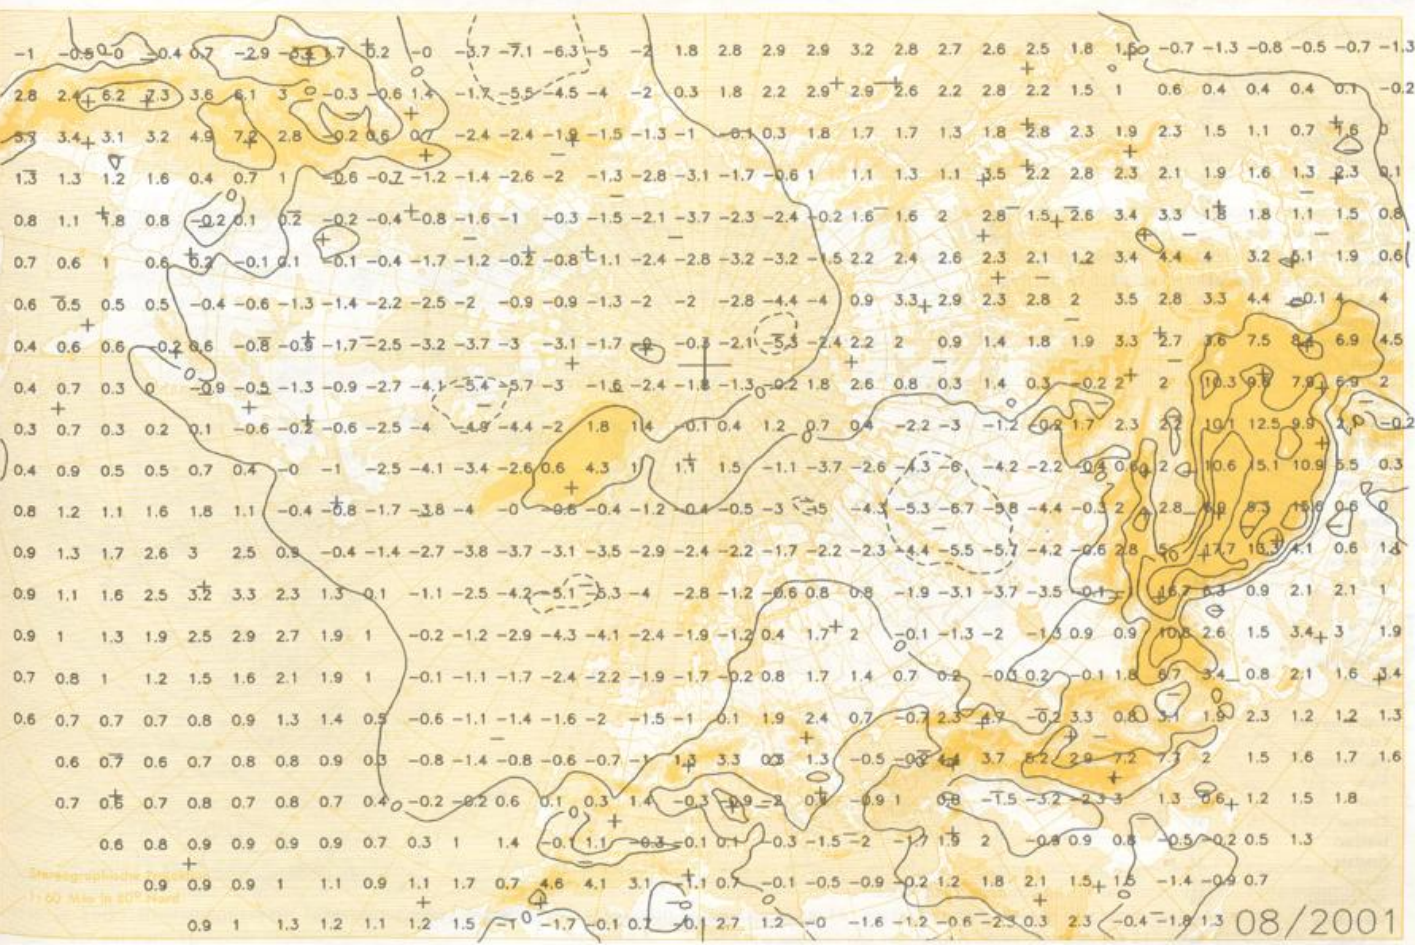 -1 -0.5 -0 -0.4 0.7 -2.9 1.7 0.2 -0 -3.7 -7.1 -6.3 -5 -2 1.8 2.8 2.9 2.9 3.2 2.8 2.7 2.6 2.5 1.8 -0.7 -1.3 -0.8 -0.5 -0.7 -1.3
2.8 2.4 6.2 7.3 3.6 6.1 3 -0.3 -0.6 1.4 -1.7 -5.5 -4.5 -4 -2 0.3 1.8 2.2 2.9 2.9 2.6 2.2 2.8 2.2 1.5 1 0.6 0.4 0.4 0.4 0.1 -0.2
3.7 3.4 3.1 3.2 4.9 7.2 2.8 -0.2 0.6 0.7 -2.4 -2.4 -1.9 -1.5 -1.3 -1 -0.1 0.3 1.8 1.7 1.7 1.3 1.8 2.8 2.3 1.9 2.3 1.5 1.1 0.7 1.6 0
1.3 1.3 1.2 1.6 0.4 0.7 1 -0.6 -0.7 -1.2 -1.4 -2.6 -2 -1.3 -2.8 -3.1 -1.7 -0.6 1 1.1 1.3 1.1 3.5 2.2 2.8 2.3 2.1 1.9 1.6 1.3 2.3 0.1
0.8 1.1 1.8 0.8 -0.2 0.1 0.2 -0.2 -0.4 -0.8 -1.6 -1 -0.3 -1.5 -2.1 -3.7 -2.3 -2.4 -0.2 1.6 1.6 2 2.8 1.5 2.6 3.4 3.3 1.8 1.8 1.1 1.5 0.8
0.7 0.6 1 0.6 0.2 -0.1 0.1 -0.1 -0.4 -1.7 -1.2 -0.2 -0.8 -1.1 -2.4 -2.8 -3.2 -3.2 -1.5 2.2 2.4 2.6 2.3 2.1 1.2 3.4 4.4 4 3.2 5.1 1.9 0.6
0.6 0.5 0.5 0.5 -0.4 -0.6 -1.3 -1.4 -2.2 -2.5 -2 -0.9 -0.9 -1.3 -2 -2 -2.8 -4.4 -4 0.9 3.3 2.9 2.3 2.8 2 3.5 2.8 3.3 4.4 -0.1 4 4
0.4 0.6 0.6 -0.2 0.6 -0.8 -0.9 -1.7 -2.5 -3.2 -3.7 -3 -3.1 -1.7 -0.3 -2.1 -5.3 -2.4 2.2 2 0.9 1.4 1.8 1.9 3.3 2.7 3.6 7.5 8.4 6.9 4.5
0.4 0.7 0.3 0 -0.9 -0.5 -1.3 -0.9 -2.7 -4.1 -5.4 -5.7 -3 -1.6 -2.4 -1.8 -1.3 -0.2 1.8 2.6 0.8 0.3 1.4 0.3 -0.2 2 2 10.3 9.6 7.9 6.9 2
0.3 0.7 0.3 0.2 0.1 -0.6 -0.2 -0.6 -2.5 -4 -4.9 -4.4 -2 1.8 1.4 -0.1 0.4 1.2 0.7 0.4 -2.2 -3 -1.2 -0.2 1.7 2.3 2.2 10.1 12.5 9.9 2.1 -0.2
0.4 0.9 0.5 0.5 0.7 0.4 -0 -1 -2.5 -4.1 -3.4 -2.6 0.6 4.3 1 1.1 1.5 -1.1 -3.7 -2.6 -4.3 -6 -4.2 -2.2 -0.4 0.6 2 10.6 15.1 10.9 5.5 0.3
0.8 1.2 1.1 1.6 1.8 1.1 -0.4 -0.8 -1.7 -3.8 -4 -0 -0.6 -0.4 -1.2 -0.4 -0.5 -3 -5 -4.3 -5.3 -6.7 -5.8 -4.4 -0.3 2 2.8 9.3 15.6 0.6 0
0.9 1.3 1.7 2.6 3 2.5 0.9 -0.4 -1.4 -2.7 -3.8 -3.7 -3.1 -3.5 -2.9 -2.4 -2.2 -1.7 -2.2 -2.3 -4.4 -5.5 -5.7 -4.2 -0.6 2.8 5 17.7 13.3 4.1 0.6 1.1
0.9 1.1 1.6 2.5 3.2 3.3 2.3 1.3 0.1 -1.1 -2.5 -4.2 -5.1 -5.3 -4 -2.8 -1.2 -0.6 0.8 0.8 -1.9 -3.1 -3.7 -3.5 -0.1 -1 16.7 6.3 0.9 2.1 2.1 1
0.9 1 1.3 1.9 2.5 2.9 2.7 1.9 1 -0.2 -1.2 -2.9 -4.3 -4.1 -2.4 -1.9 -1.2 0.4 1.7 2 -0.1 -1.3 -2 -1.3 0.9 0.9 10.8 2.6 1.5 3.4 3 1.9
0.7 0.8 1 1.2 1.5 1.6 2.1 1.9 1 -0.1 -1.1 -1.7 -2.4 -2.2 -1.9 -1.7 -0.2 0.8 1.7 1.4 0.7 0.2 -0.3 0.2 -0.1 1.8 6.7 3.4 0.8 2.1 1.6 3.4
0.6 0.7 0.7 0.7 0.8 0.9 1.3 1.4 0.5 -0.6 -1.1 -1.4 -1.6 -2 -1.5 -1 0.1 1.9 2.4 0.7 -0.7 2.3 4.7 -0.2 3.3 0.8 3.1 1.9 2.3 1.2 1.2 1.3
0.6 0.7 0.6 0.7 0.8 0.8 0.9 0.3 -0.8 -1.4 -0.8 -0.6 -0.7 -1 1.3 3.3 0.3 1.3 -0.5 -0.2 4.4 3.7 5.2 2.9 7.2 7.7 2 1.5 1.6 1.7 1.6
0.7 0.6 0.7 0.8 0.7 0.8 0.7 0.4 -0.2 -0.2 0.6 0.1 0.3 1.4 -0.3 -0.9 -2 -0.9 1 0.8 -1.5 -3.2 -2.3 3 1.3 0.6 1.2 1.5 1.8
0.6 0.8 0.9 0.9 0.9 0.9 0.7 0.3 1 1.4 -0.1 1.1 -0.3 -0.1 0.1 -0.3 -1.5 -2 -1.7 1.9 2 -0.9 0.9 0.8 -0.5 -0.2 0.5 1.3
Stereographische Projektion
0.9 0.9 0.9 1 1.1 0.9 1.1 1.7 0.7 4.6 4.1 3.1 -1.1 0.7 -0.1 -0.5 -0.9 -0.2 1.2 1.8 2.1 1.5 1.5 -1.4 -0.9 0.7
1:60 Mio in 60° Nord
0.9 1 1.3 1.2 1.1 1.2 1.5 -1 -1.7 -0.1 0.7 -0.1 2.7 1.2 -0 -1.6 -1.2 -0.6 -2.3 0.3 2.3 -0.4 -1.8 1.3 08/2001